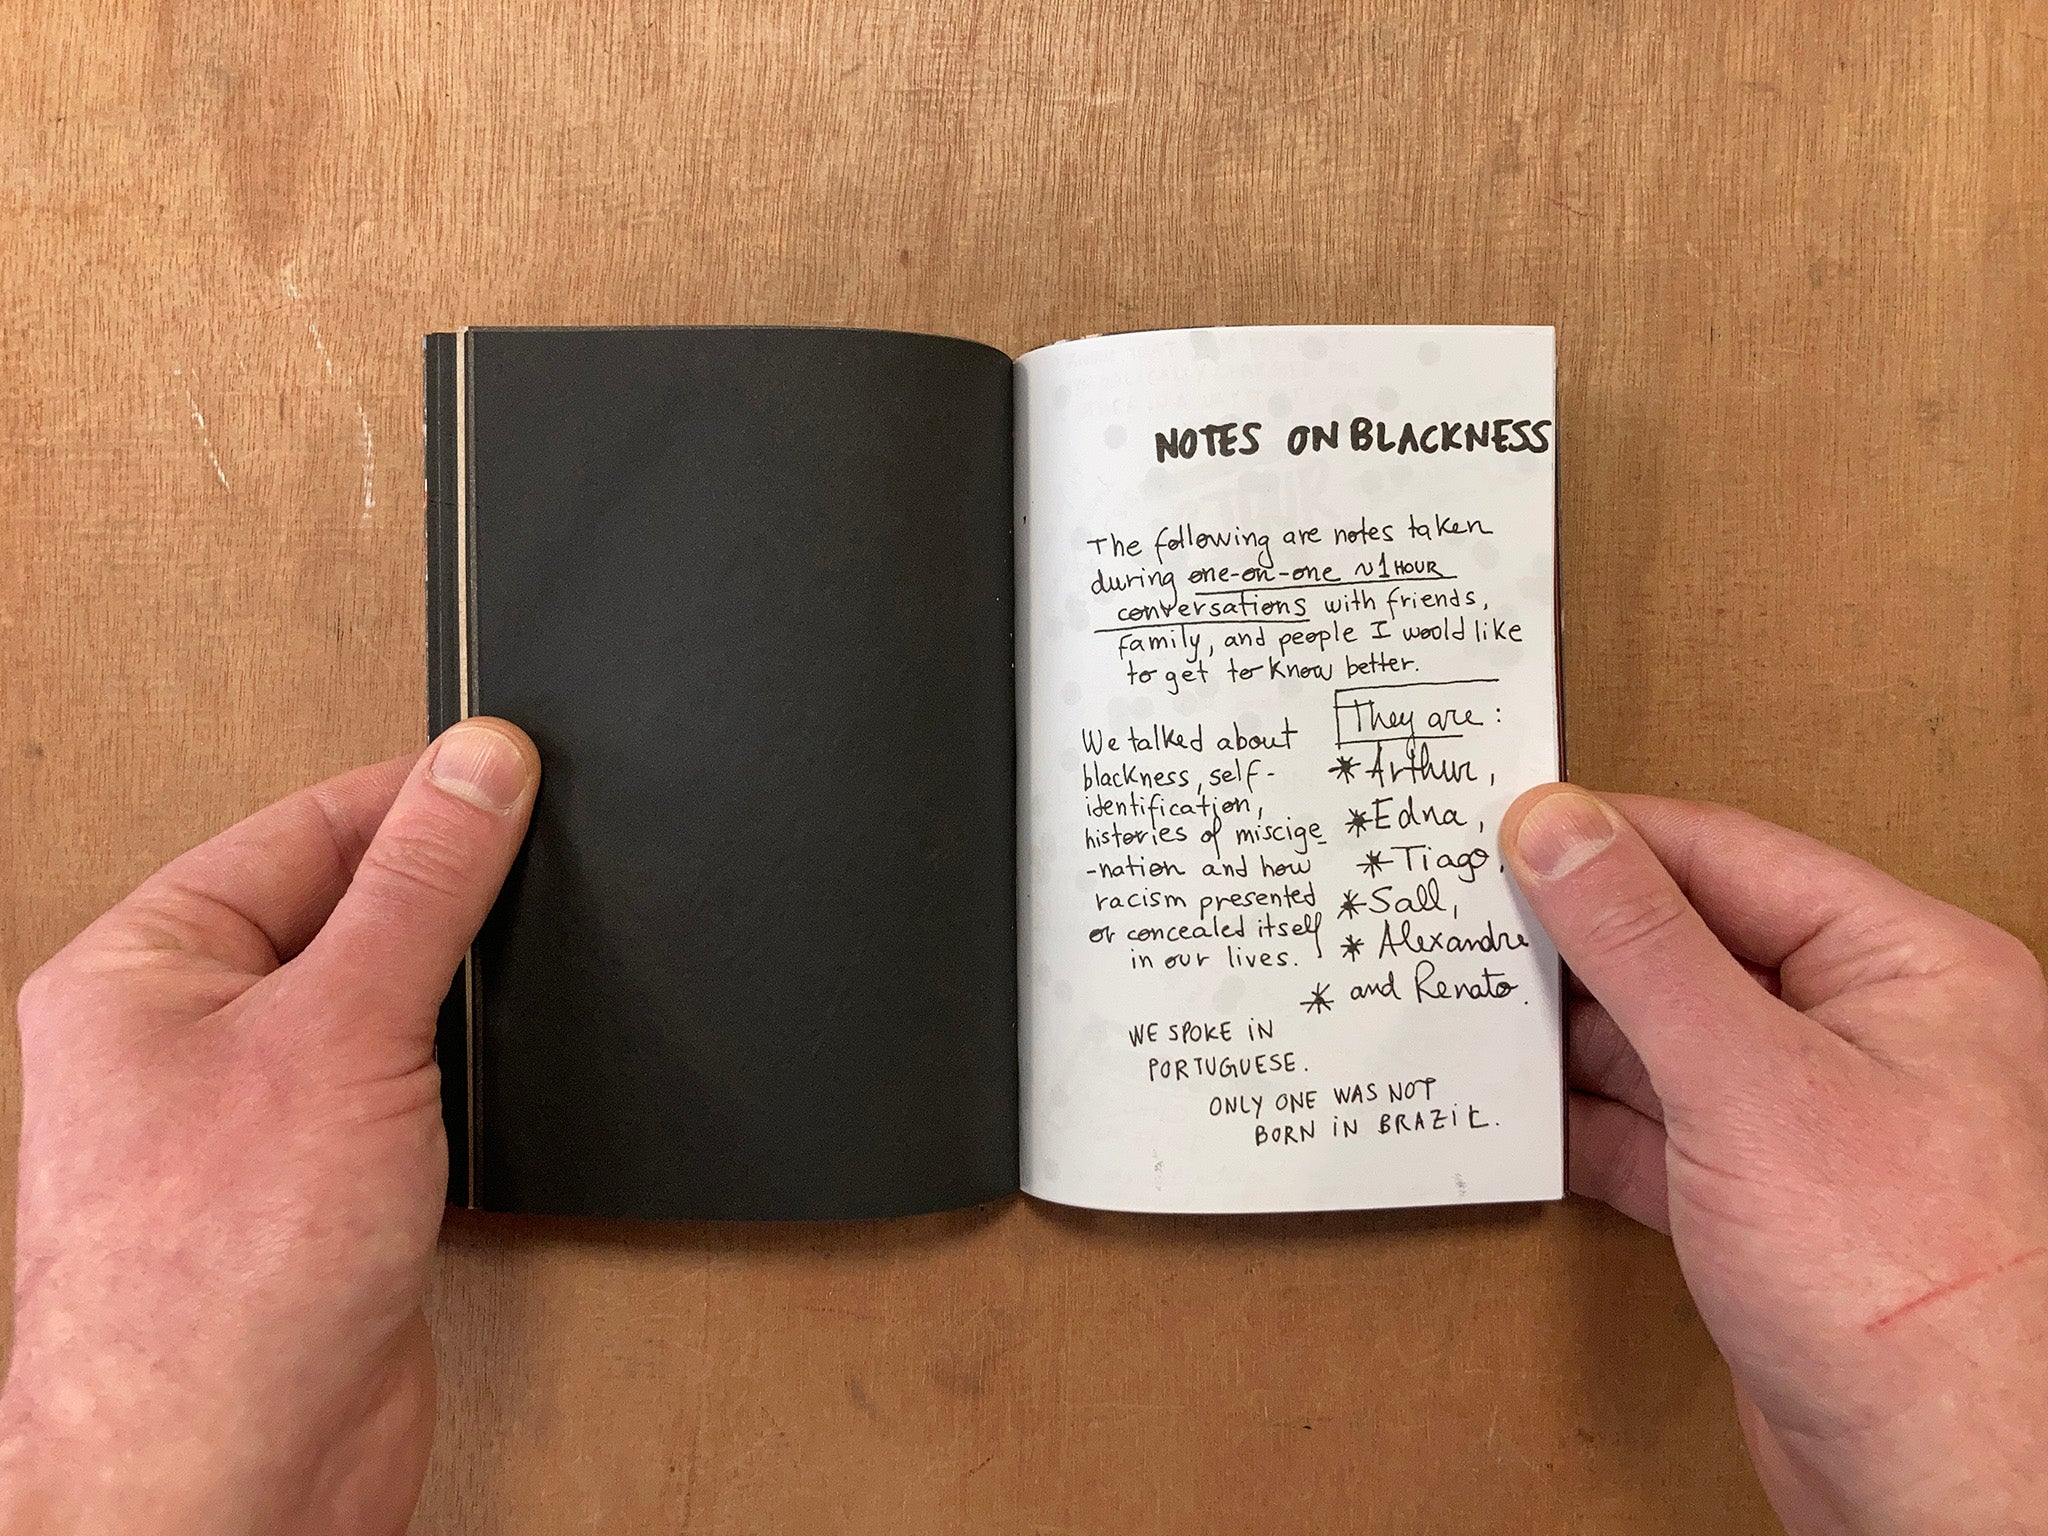 NOTES ON BLACKNESS
The following are notes taken
during one-on-one ~1HOUR
conversations with friends,
family, and people I would like
to get to know better.
We talked about
blackness, self-
identification,
histories of miscige
-nation and how
racism presented
or concealed itself
in our lives.
They are:
* Arthur,
* Edna,
* Tiago,
* Sall,
* Alexandre
* and Renato.
WE SPOKE IN
PORTUGUESE.
ONLY ONE WAS NOT
BORN IN BRAZIL.